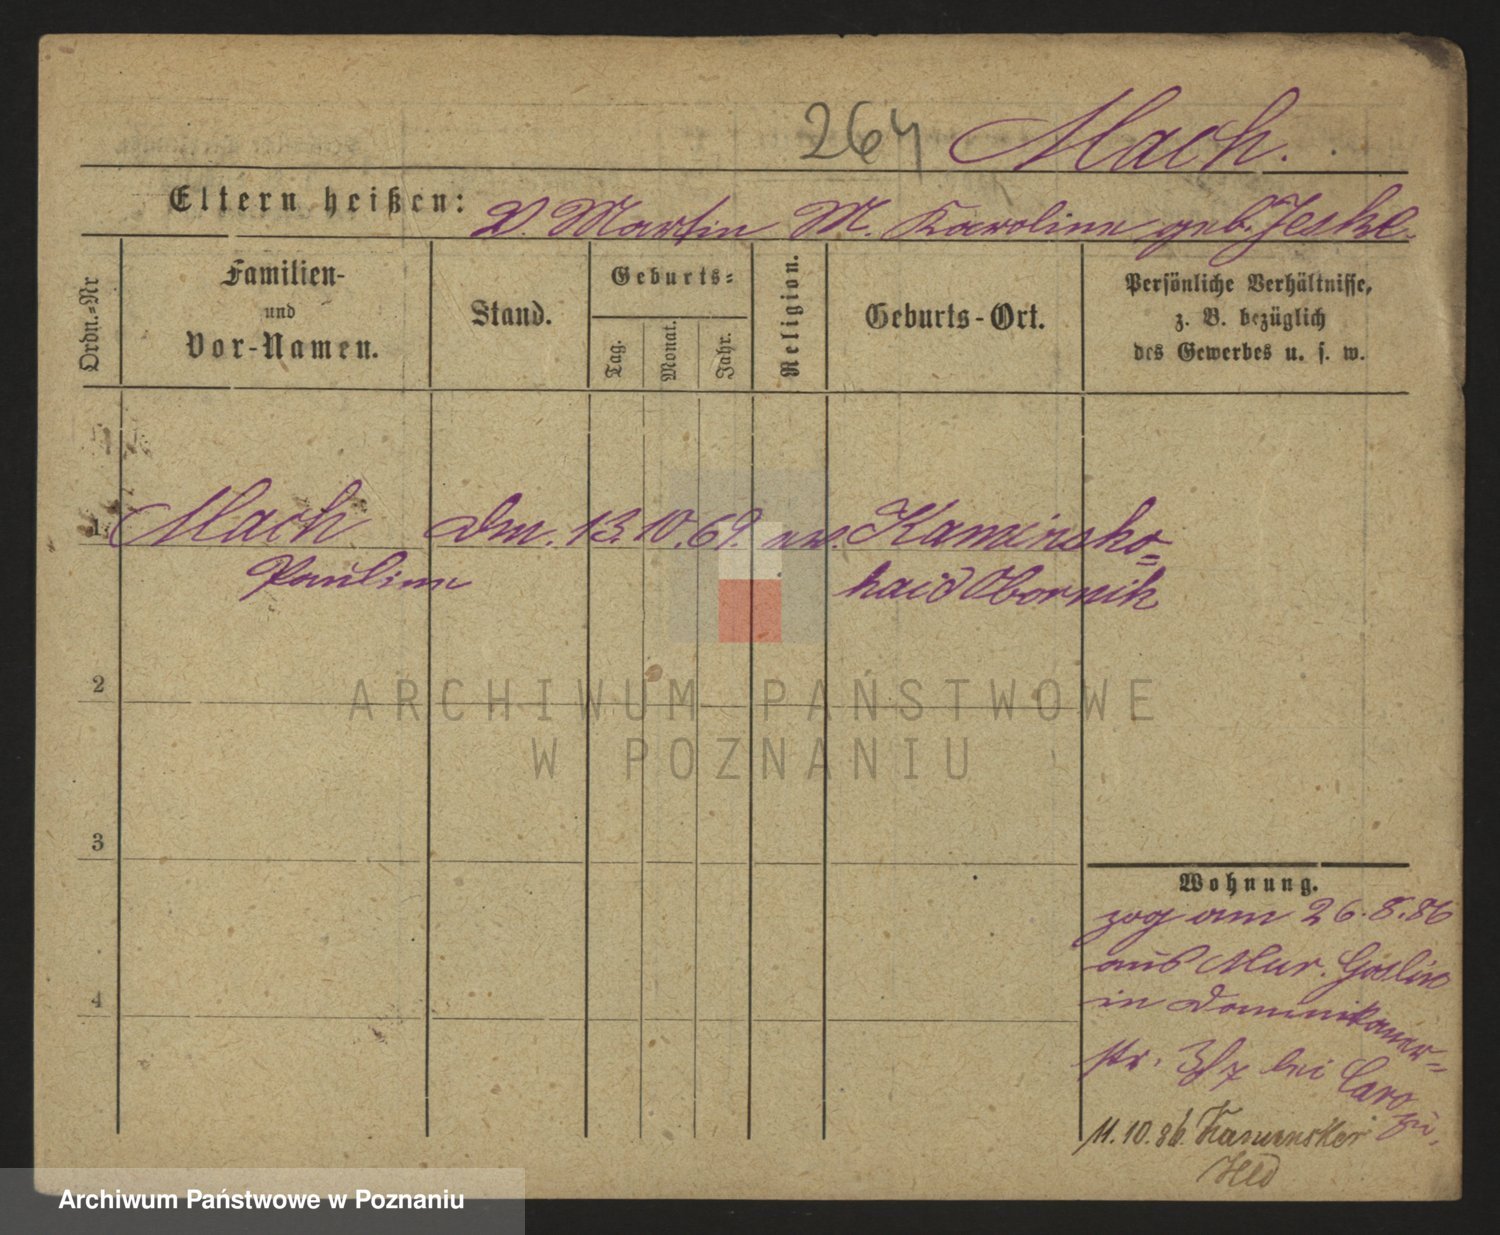 264 Mach.
Eltern heißen: V. Martin M. Karoline geb. Jeske.
Ordn.-Nr
Familien-
und
Vor-Namen.
Stand.
Geburts-
Tag.
Monat.
Jahr.
Religion.
Geburts-Ort.
Persönliche Verhältnisse,
z. B. bezüglich
des Gewerbes u. s. w.
1 Mach Dm. 13. 10. 69. ev. Kaminsko-
Pauline haid Obornik
ARCHIWUM PAŃSTWOWE
W POZNANIU
2
3
4
Wohnung.
zog am 26.8.86
aus Mur. Goslin
in Dominikaner-
str. bei Caro
zu.
11.10.86. Kaminsker
Hld
Archiwum Państwowe w Poznaniu